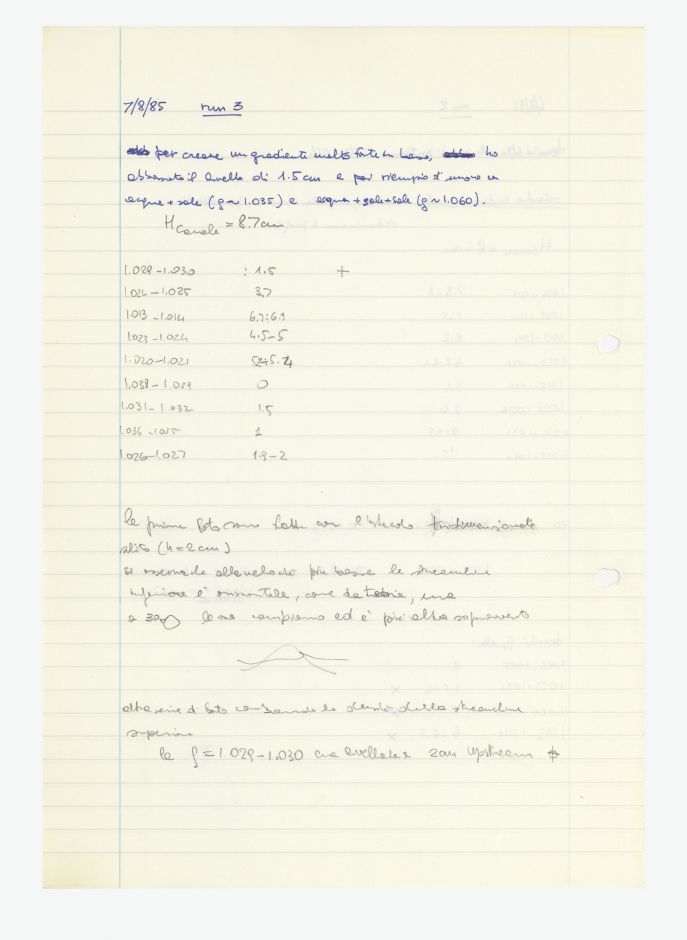 7/8/85 run 3
per creare un gradiente molto forte in basso, ho
abbassato il livello di 1.5 cm e poi riempio di nuovo con
acqua + sale (ρ ~ 1.035) e acqua + sale + sale (ρ ~ 1.060).
H canale = 8.7 cm
1.029 - 1.030 : 1.5 +
1.024 - 1.025 3.7
1.013 - 1.014 6.7 : 6.9
1.023 - 1.024 4.5 - 5
1.020 - 1.021
1.038 - 1.039 0
1.031 - 1.032 1.5
1.034 - 1.035 1
1.026 - 1.027 1.9 - 2
le prime foto sono fatte con l'ostacolo tridimensionale
solito (h = 2 cm)
si osserva che alla velocità più bassa la streamline
inferiore è orizzontale, come da teoria, ma
a 30 le cose cambiano ed è più alta sopravvento
altra serie di foto cambiando la densità della streamline
superiore
la ρ = 1.029 - 1.030 era livellata a 2 cm upstream